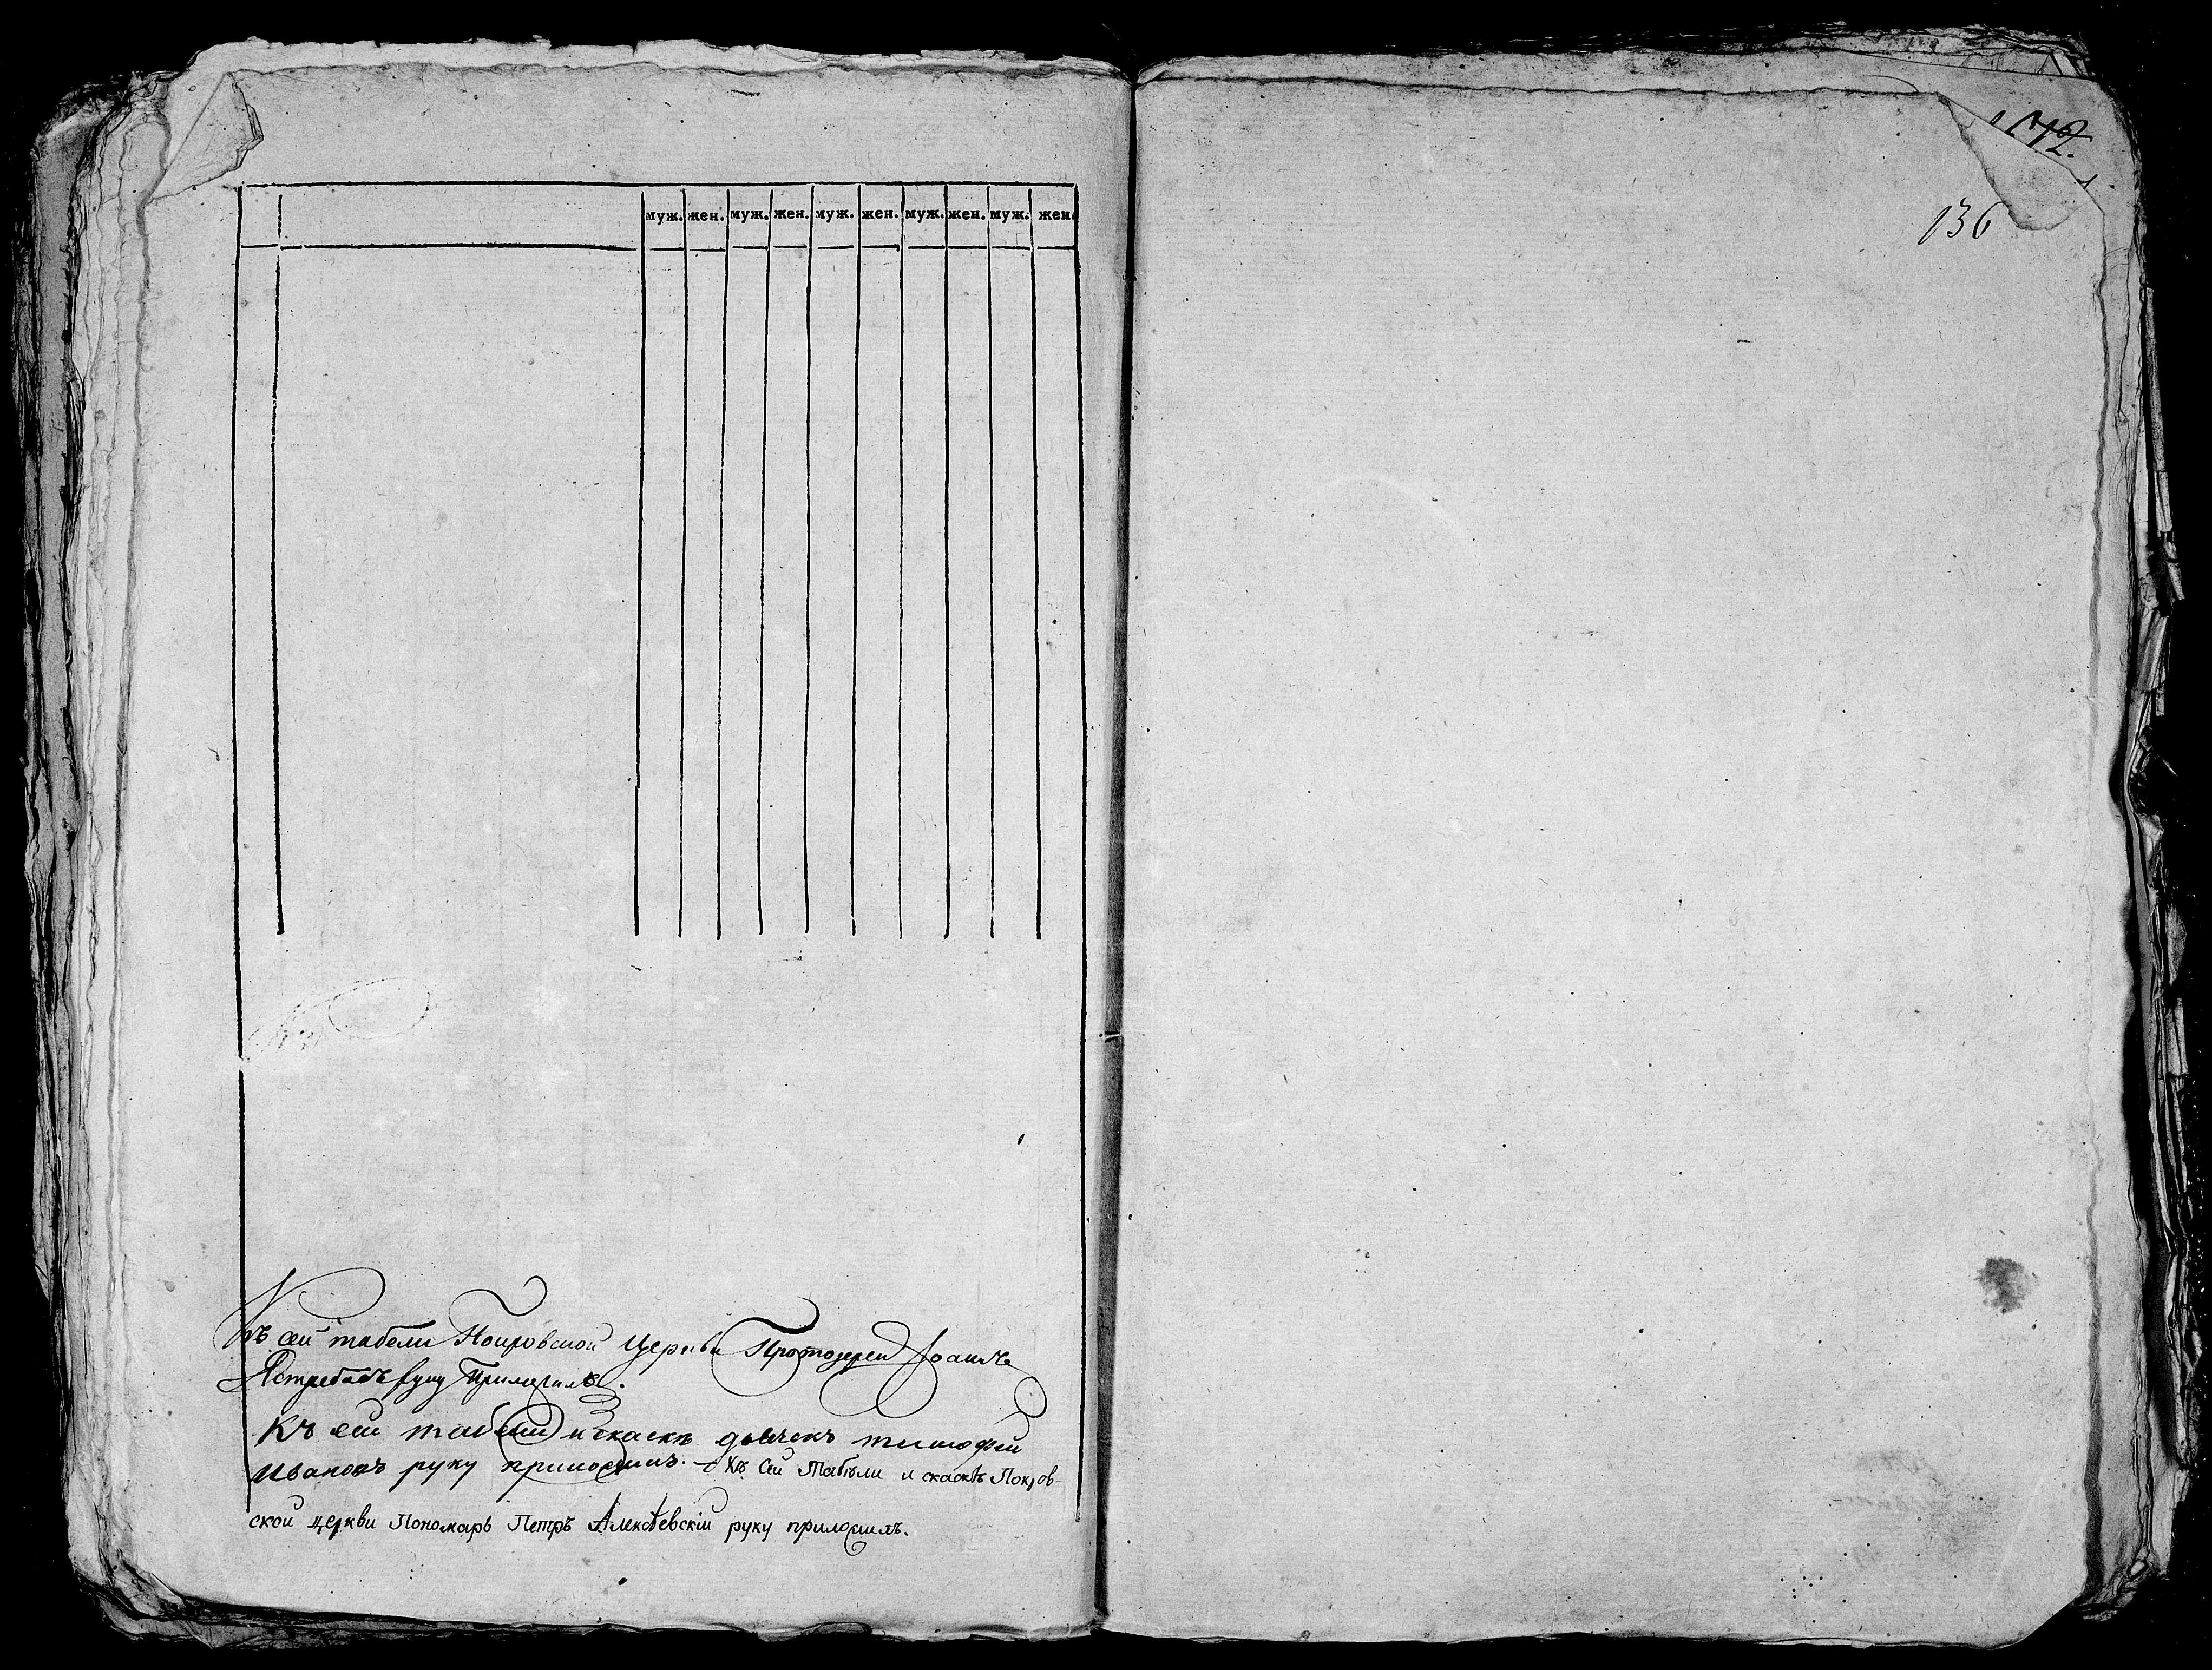 муж. жен. муж. жен. муж. жен. муж. жен. муж. жен.
Къ сей табели Покровской Церкви Протоиерей Иоаннъ
Ястребовъ руку Приложилъ.
Къ сей табели и скаске дьячекъ тимофей
Ивановъ руку приложилъ. Къ Сей Табѣли и скаскѣ Покров-
ской церкви Пономарь Петръ Алексѣевскій руку приложилъ.
136